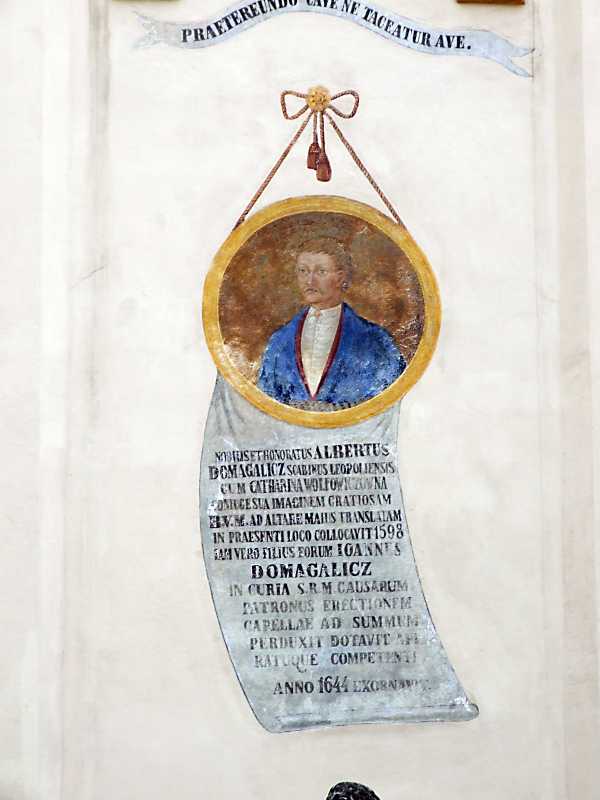 PRAETEREUNDO CAVE NE TACEATUR AVE.
NOBILIS ET HONORATUS ALBERTUS
DOMAGALICZ SCABINUS LEOPOLIENSIS
CUM CATHARINA WOLFOWICZOWNA
CONIUGE SUA IMAGINEM GRATIOSAM
B.V.M. AD ALTARE MAIUS TRANSLATAM
IN PRAESENTI LOCO COLLOCAVIT 1598
IAM VERO FILIUS EORUM IOANNES
DOMAGALICZ
IN CURIA S.R.M. CAUSARUM
PATRONUS ERECTIONEM
CAPELLAE AD SUMMUM
PERDUXIT DOTAVIT
RATUQUE COMPETENTI
ANNO 1644 EXORNAVIT.